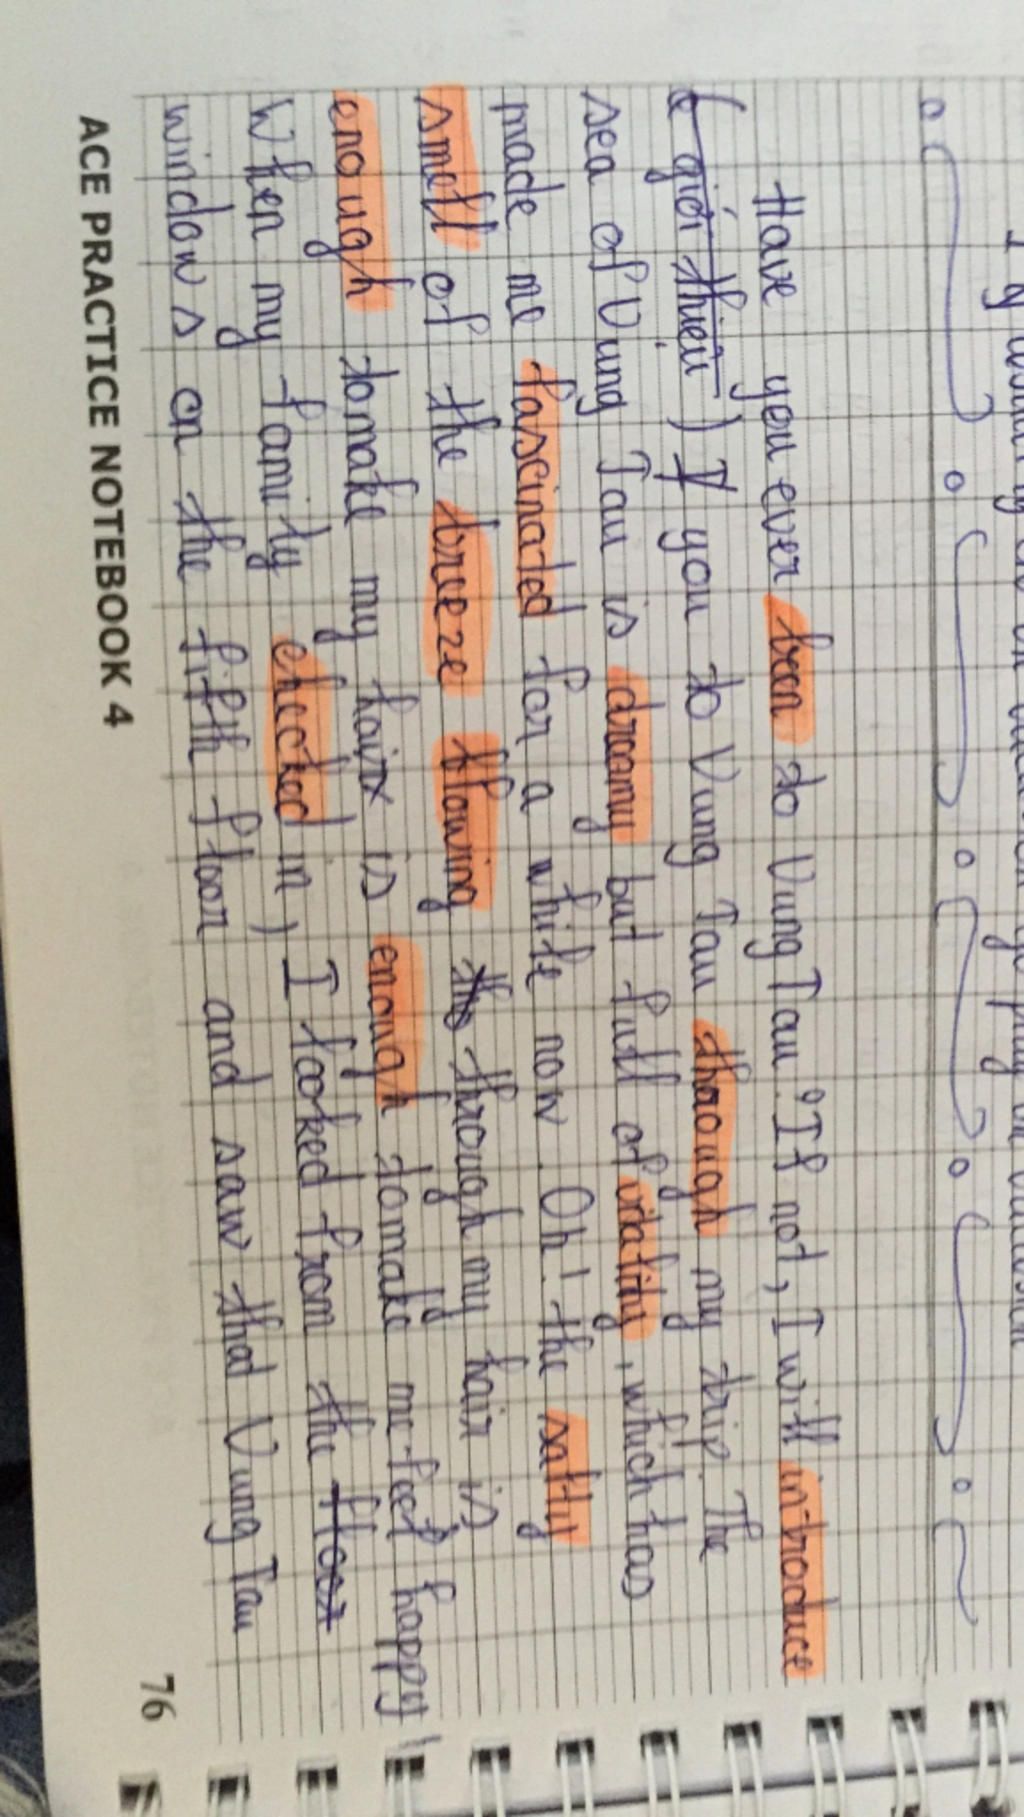 Have you ever been to Vung Tau? If not, I will introduce
( giới thiệu ) I you to Vung Tau through my trip. The
sea of Vung Tau is dreamy but full of vitality, which has
made me fascinated for a while now. Oh! the salty
smell of the breeze blowing through my hair is
enough to make my hair is enough to make me feel happy!
When my family checked in, I looked from the floor
windows on the fifth floor and saw that Vung Tau
ACE PRACTICE NOTEBOOK 4
76